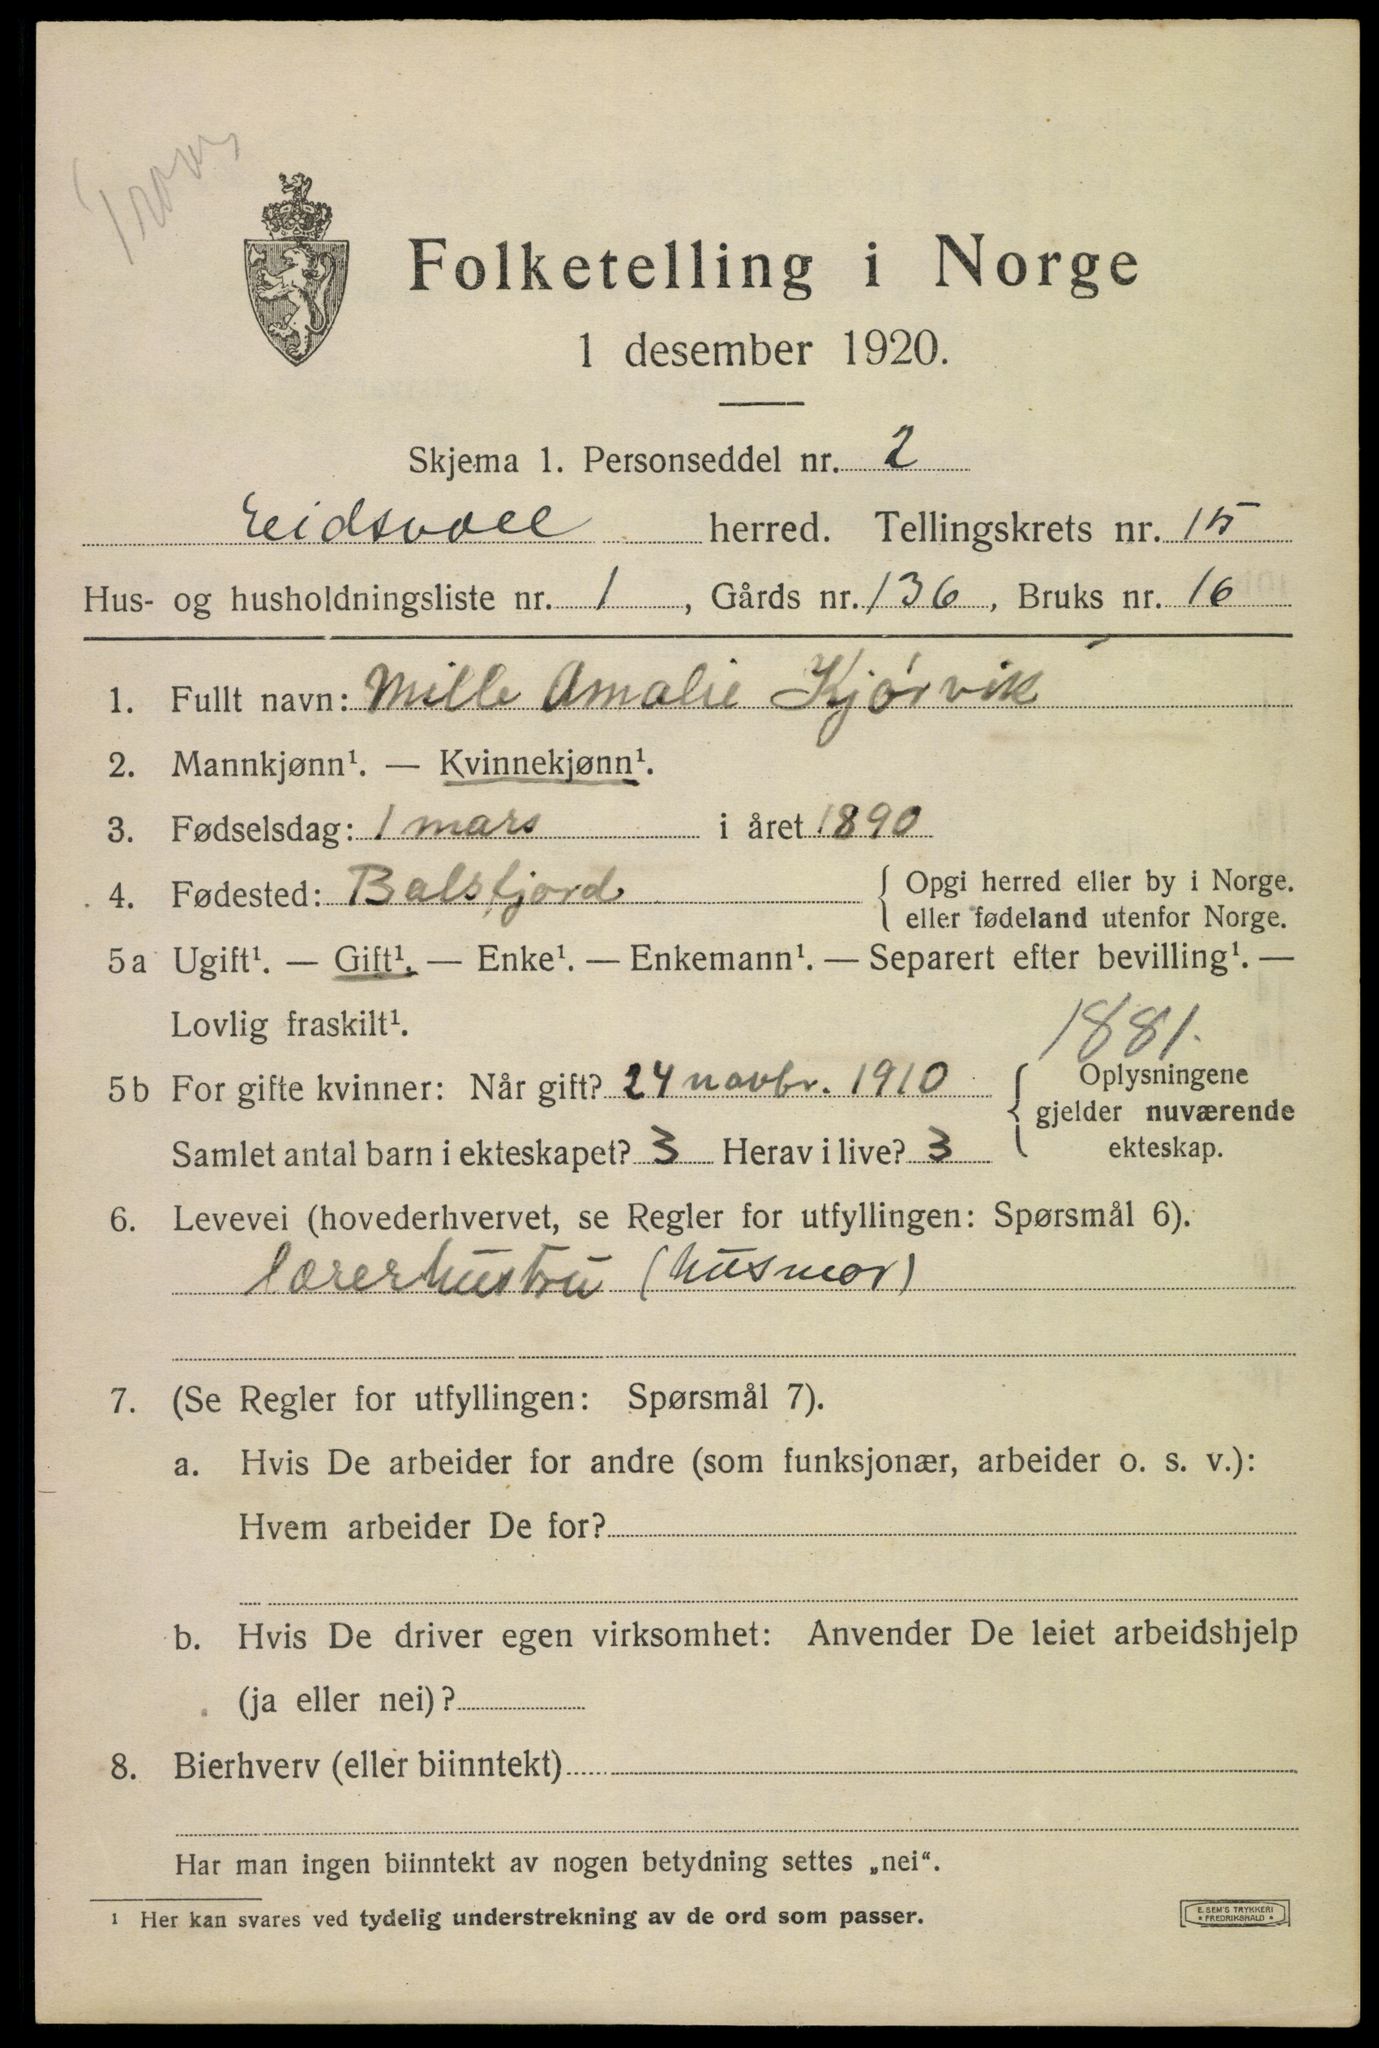 Troms
Folketelling i Norge
1 desember 1920.
Skjema 1. Personseddel nr. 2
Eidsvoll herred. Tellingskrets nr. 15
Hus- og husholdningsliste nr. 1, Gårds nr. 136, Bruks nr. 16
1. Fullt navn: Mille Amalie Kjørvik
2. Mannkjønn¹. — Kvinnekjønn¹.
3. Fødselsdag: 1 mars i året 1890
4. Fødested: Balsfjord { Opgi herred eller by i Norge.
eller fødeland utenfor Norge.
5a Ugift¹. — Gift¹. — Enke¹. — Enkemann¹. — Separert efter bevilling¹. —
Lovlig fraskilt¹.
1881.
5b For gifte kvinner: Når gift? 24 novbr. 1910 { Oplysningene
gjelder nuværende
Samlet antal barn i ekteskapet? 3 Herav i live? 3 ekteskap.
6. Levevei (hovederhvervet, se Regler for utfyllingen: Spørsmål 6).
lærerhustru (husmor)
7. (Se Regler for utfyllingen: Spørsmål 7).
a. Hvis De arbeider for andre (som funksjonær, arbeider o. s. v.):
Hvem arbeider De for?
b. Hvis De driver egen virksomhet: Anvender De leiet arbeidshjelp
(ja eller nei)?
8. Bierhverv (eller biinntekt)
Har man ingen biinntekt av nogen betydning settes „nei“.
¹ Her kan svares ved tydelig understrekning av de ord som passer.
E. SEM'S TRYKKERI
* FREDRIKSHALD *